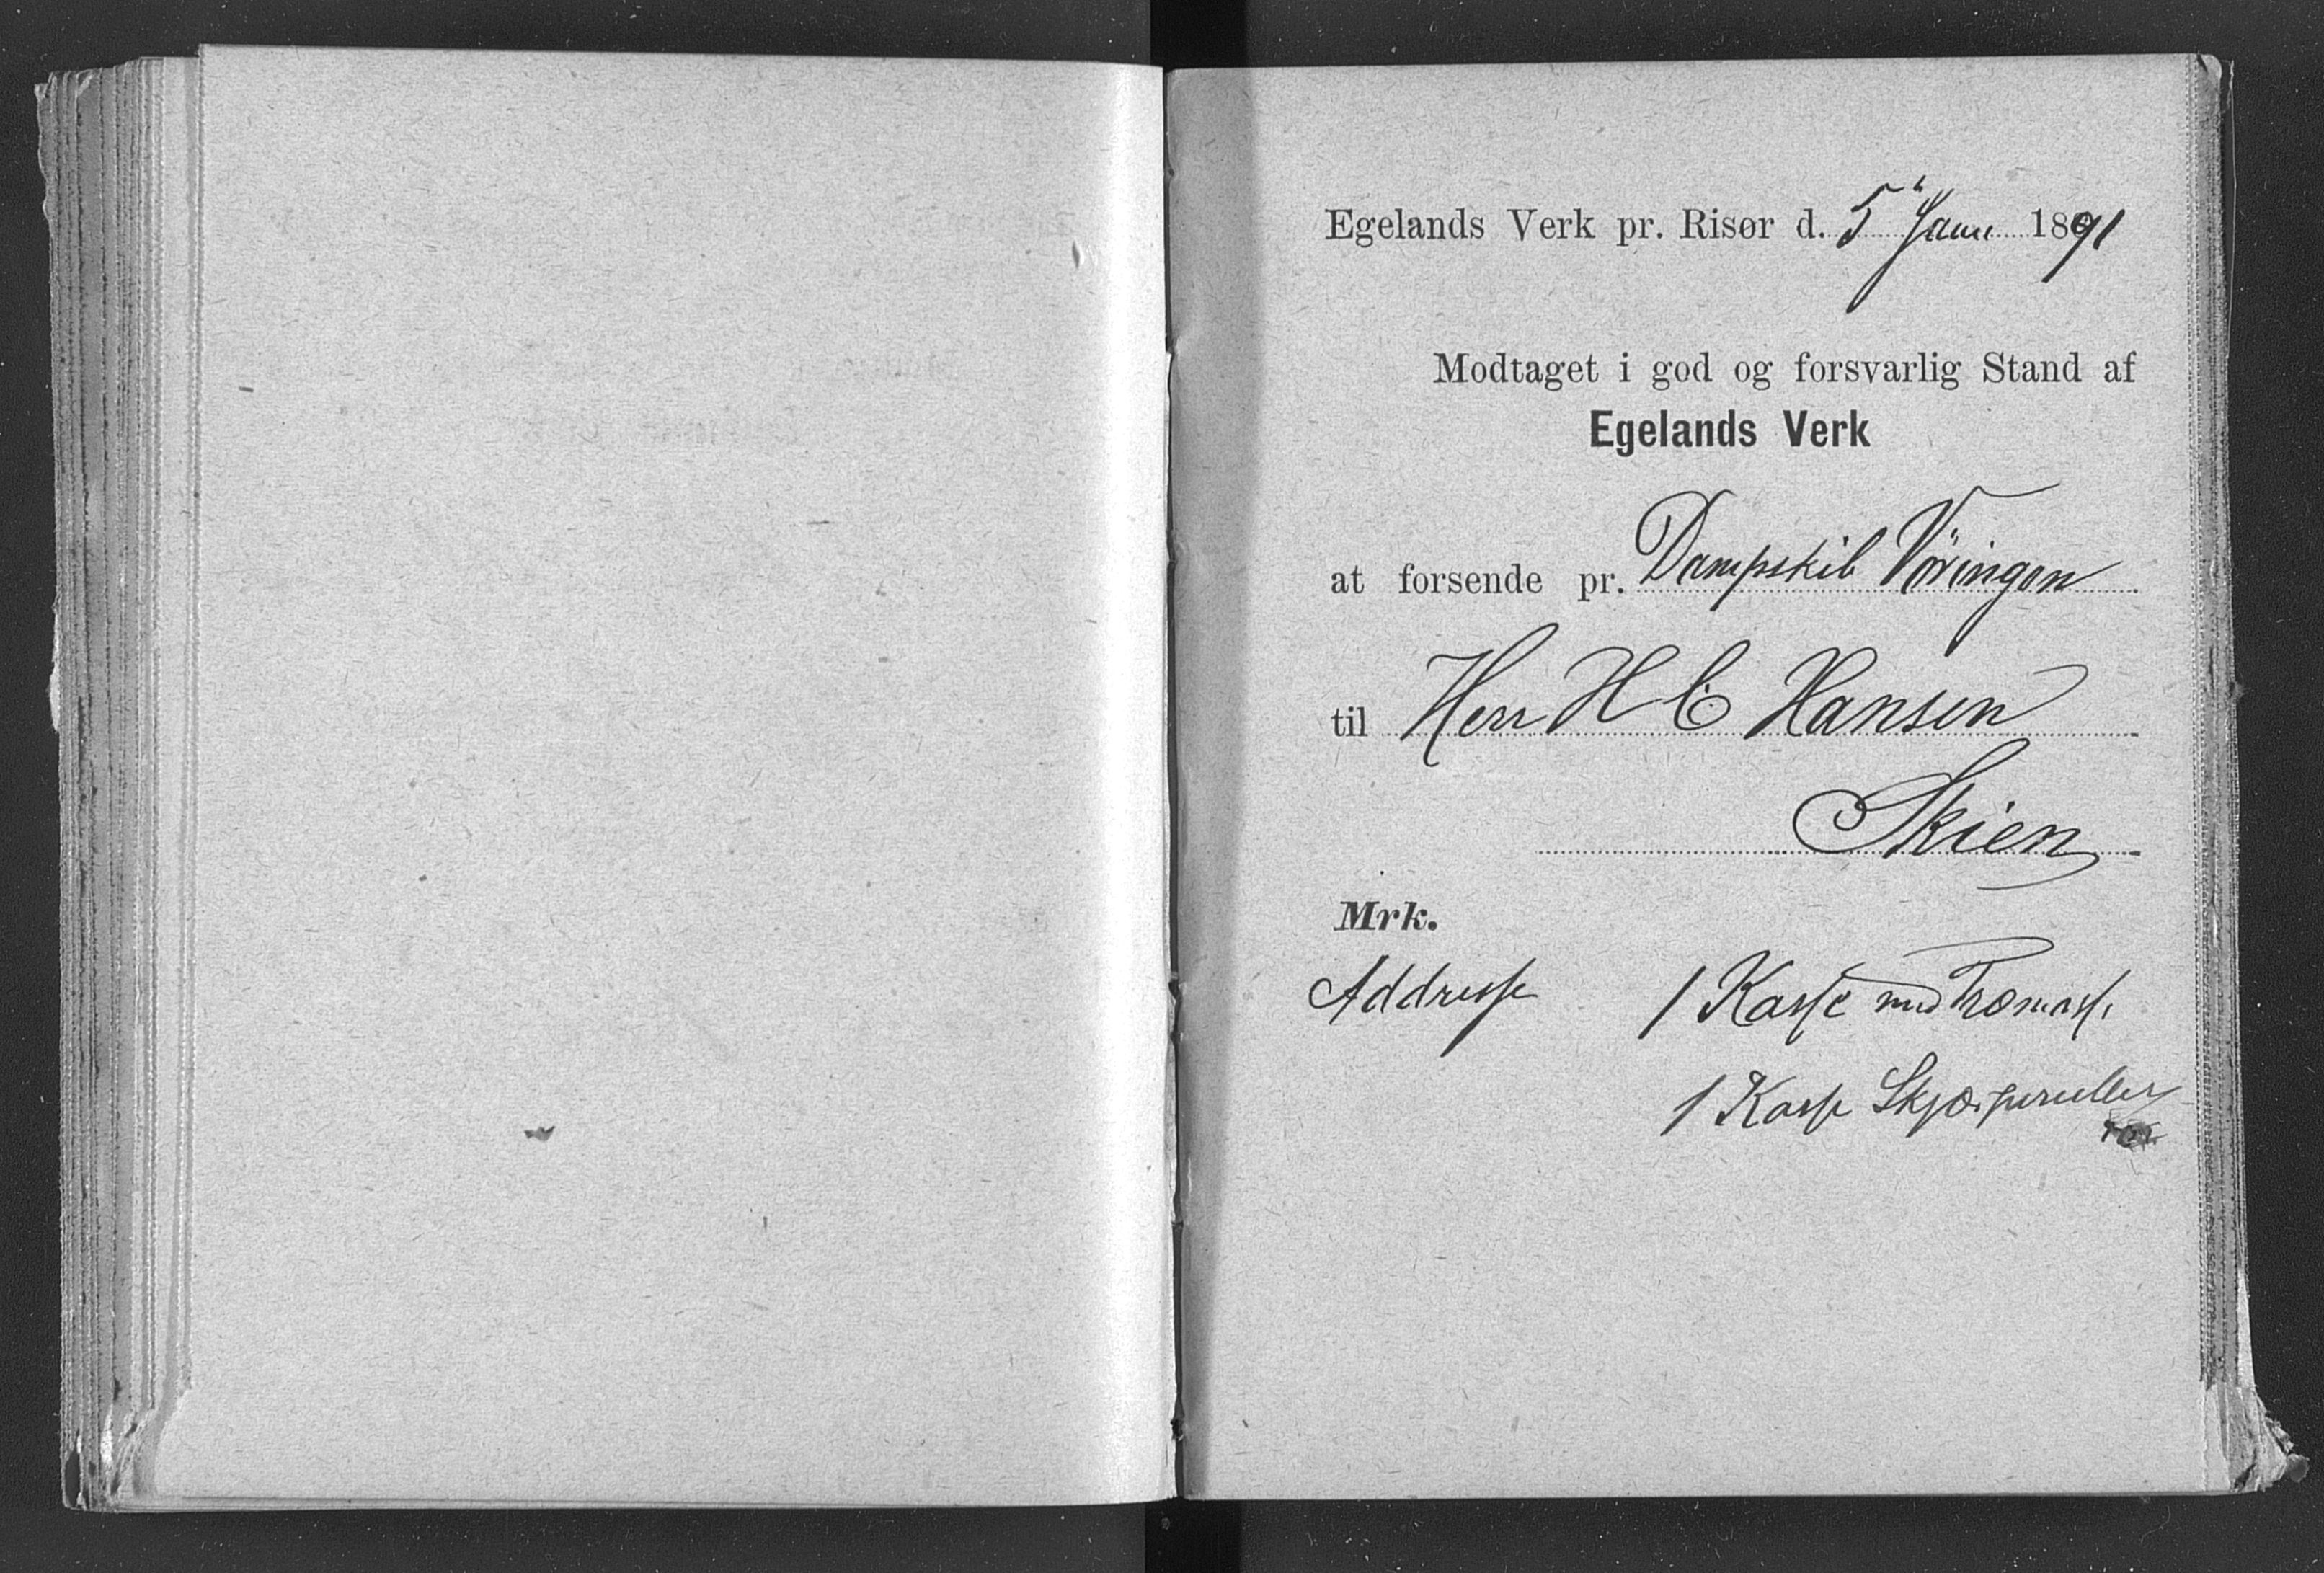 Egelands Verk pr. Risør d. 5 Janu 1891
Modtaget i god og forsvarlig Stand af
Egelands Verk
at forsende pr. Dampskib Vöringen
til Herr H C Hansen
Skien
Mrk.
Addresse 1 Kasse med
1 Kasse